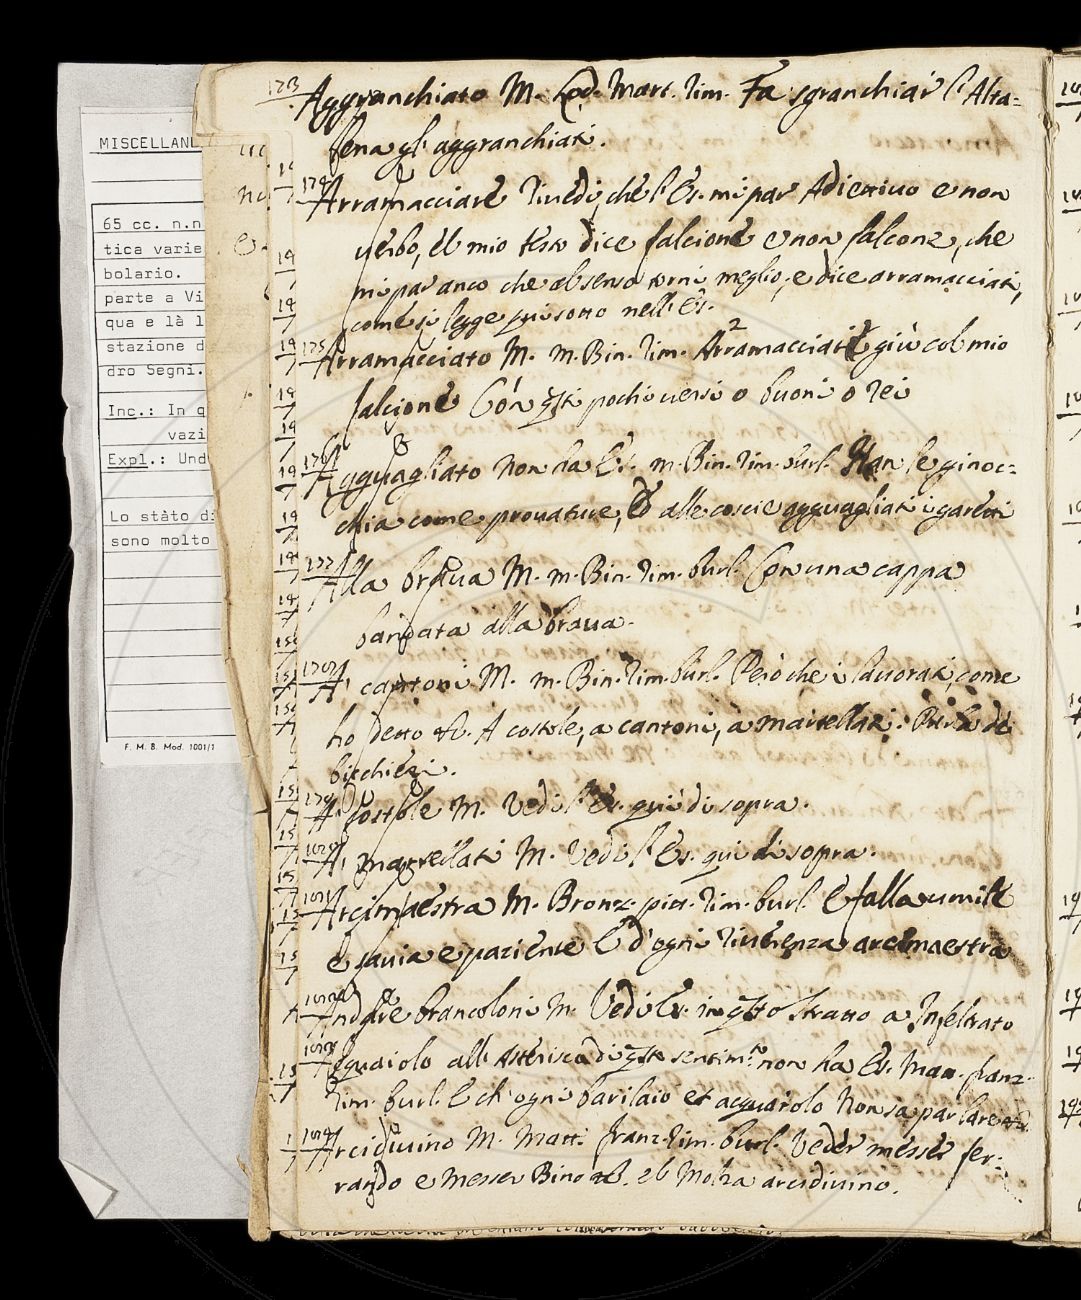 MISCELLAN
65 cc. n.n
tica varie
bolario.
parte a Vi
qua e là l
stazione d
dro Segni.
Inc.: In q
vazi
Expl.: Und
Lo stàto di
sono molto
F. M. B. Mod. 1001/1
173 Aggranchiato M. Lod. Mart. rim. Fa sgranchiar l'Alta=
lena gl' aggranchiati.
174 Arramacciare Rivedi, che l'Es. mi par Adiettivo e non
verbo, el mio testo dice falcione e non falcone, che
mi par anco che al senso torni meglio, e dice arramacciati,
come si legge qui sotto nell'Es.
175 Arramacciato M. m. Bin. rim. Arramacciati giù col mio
falcione Con qsti pochi versi o buoni o rei
176 Agguagliato Non ha Es. m. Bin. rim. burl. Han le ginoc=
chia come provature, Et alle coscie agguagliati i garetti
177 Alla brava M. m. Bin. rim. burl. Con una cappa
bandata alla brava.
178 A' cantoni M. m. Bin. rim. burl. Però che i lavorati, come
ho detto &c. A costole, a cantoni, à martellati. Parla di
bicchieri.
179 A' Costole M. Vedi l'Es. qui di sopra.
A' martellati M. Vedi l'Es. qui di sopra.
Arcimaestra M. Bronz. pitt. rim. burl. E falla umile
e savia e paziente E d'ogni riverenza arcimaestra
Andare brancoloni M. Vedi Es. in qsto stratto a Infeltrato
Acquaiolo all' Asterisco di qsto sentimto non ha Es. Matt. franz.
rim. burl. E ch' ogni barilaio et acquaiolo Non sa parlare
Arcidivino M. Matt. franz. rim. burl. Veder messer fer=
rando e Messer Bino &c. el Molza arcidivino.